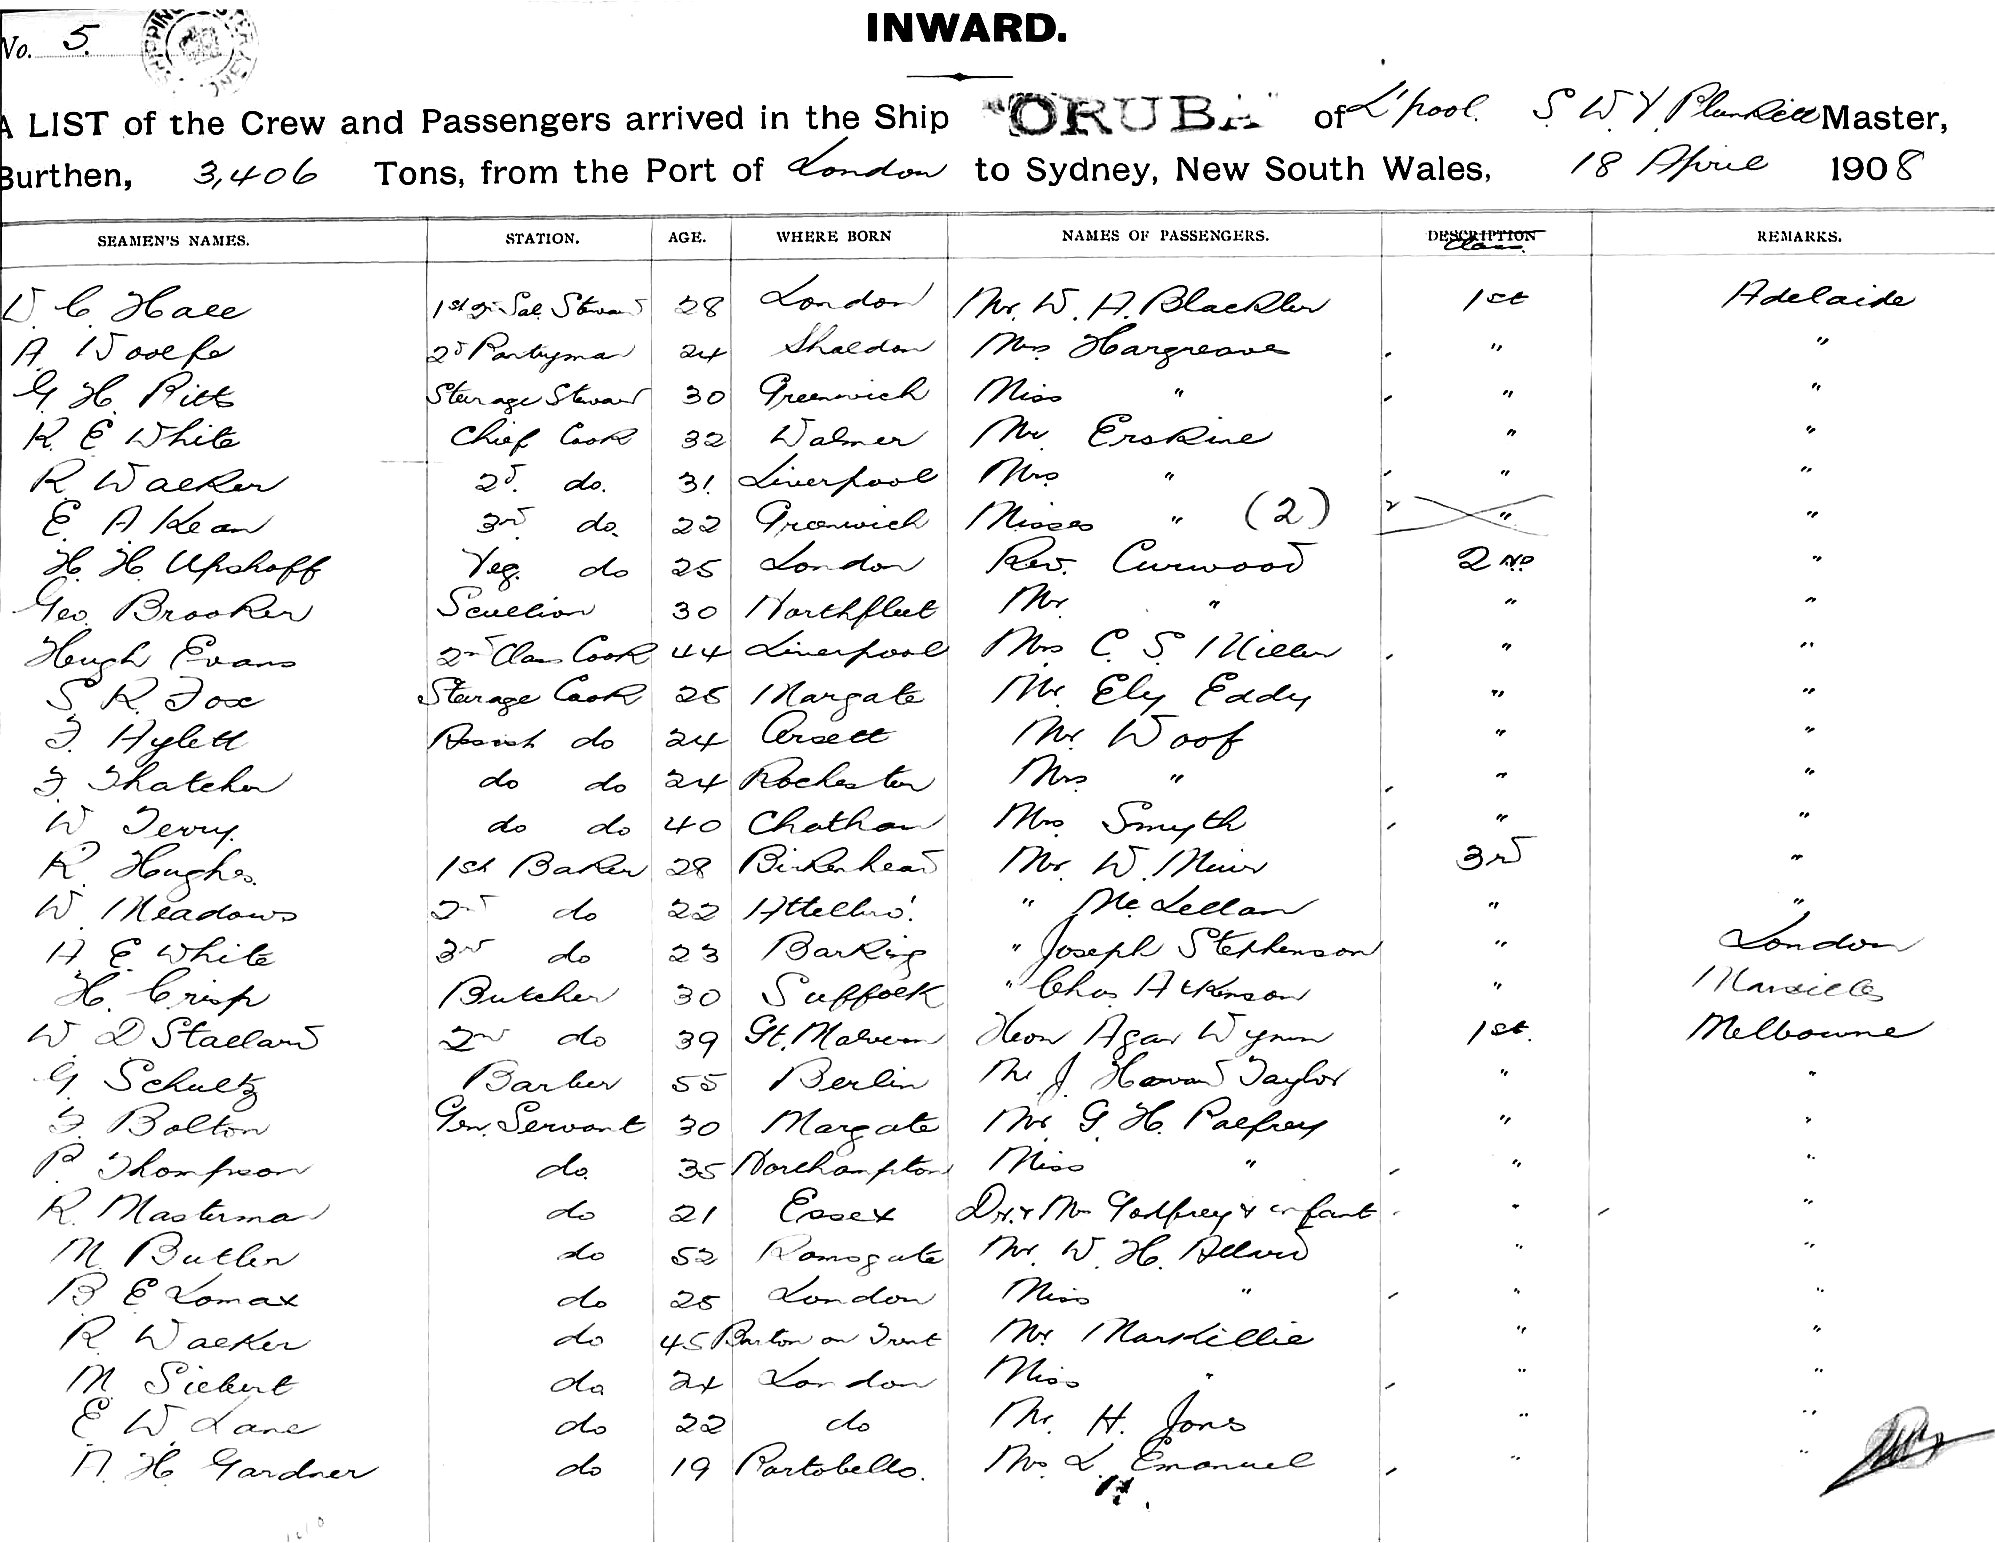 No. 5.
INWARD.
A LIST of the Crew and Passengers arrived in the Ship "ORUBA" of L'pool. S. W. Y. Plunkett Master,
Burthen, 3,406 Tons, from the Port of London to Sydney, New South Wales, 18 April 1908
SEAMEN'S NAMES. STATION. AGE. WHERE BORN NAMES OF PASSENGERS. DESCRIPTION Class. REMARKS.
W. C. Hall 1st Sal. Steward 28 London Mr. W. A. Blackler 1st Adelaide
A. Woolfe 2d Pantryman 24 Shaldon Mrs Hargreave " "
G. H. Pitts Steerage Steward 30 Greenwich Miss " " "
R. E White Chief Cook 32 Walmer Mr Erskine " "
R. Walker 2d. do. 31 Liverpool Mrs " " "
E. A. Kean 3rd do. 22 Greenwich Misses " (2) " "
H. H. Upshoff Veg. do 25 London Rev. Curwood 2nd "
Geo. Brooker Scullion 30 Northfleet Mr. " " "
Hugh Evans 2nd Class Cook 44 Liverpool Mrs C. S. Miller " "
S. R. Fox Steerage Cook 25 Margate Mr. Ely Eddy " "
F. Hylett Assist do 24 Orsett Mr. Woof " "
F. Thatcher do do 24 Rochester Mrs " " "
W Terry. do do 40 Chatham Mrs Smyth " "
R. Hughes. 1st Baker 28 Birkenhead Mr. W. Muir 3rd "
W. Meadows 2nd do 22 Attelbro'. " McLellan " "
A E White 3rd do 23 Barking " Joseph Stephenson " London
H. Crisp Butcher 30 Suffolk " Chas Atkinson " Marseilles
W. D Stallard 2nd do 39 Gt. Malvern Hon Agar Wynn 1st. Melbourne
G Schultz Barber 55 Berlin Mr J. Howard Taylor " "
F. Bolton Gen. Servant 30 Margate Mr. G. H. Palfrey " "
P. Thompson do. 35 Northampton Miss " " "
R. Masterman do 21 Essex Dr. & Mrs Godfrey & infant " "
M. Butler do 52 Ramsgate Mr. W. H. Allard " "
B. E Lomax do 25 London Miss " " "
R. Walker do 45 Burton on Trent Mr. Markillie " "
M. Siebert do 24 London Miss " " "
E W. Lane do 22 do Mr. H. Jones " "
A. H. Gardner do 19 Portobello. Mrs. L. Emanuel " "